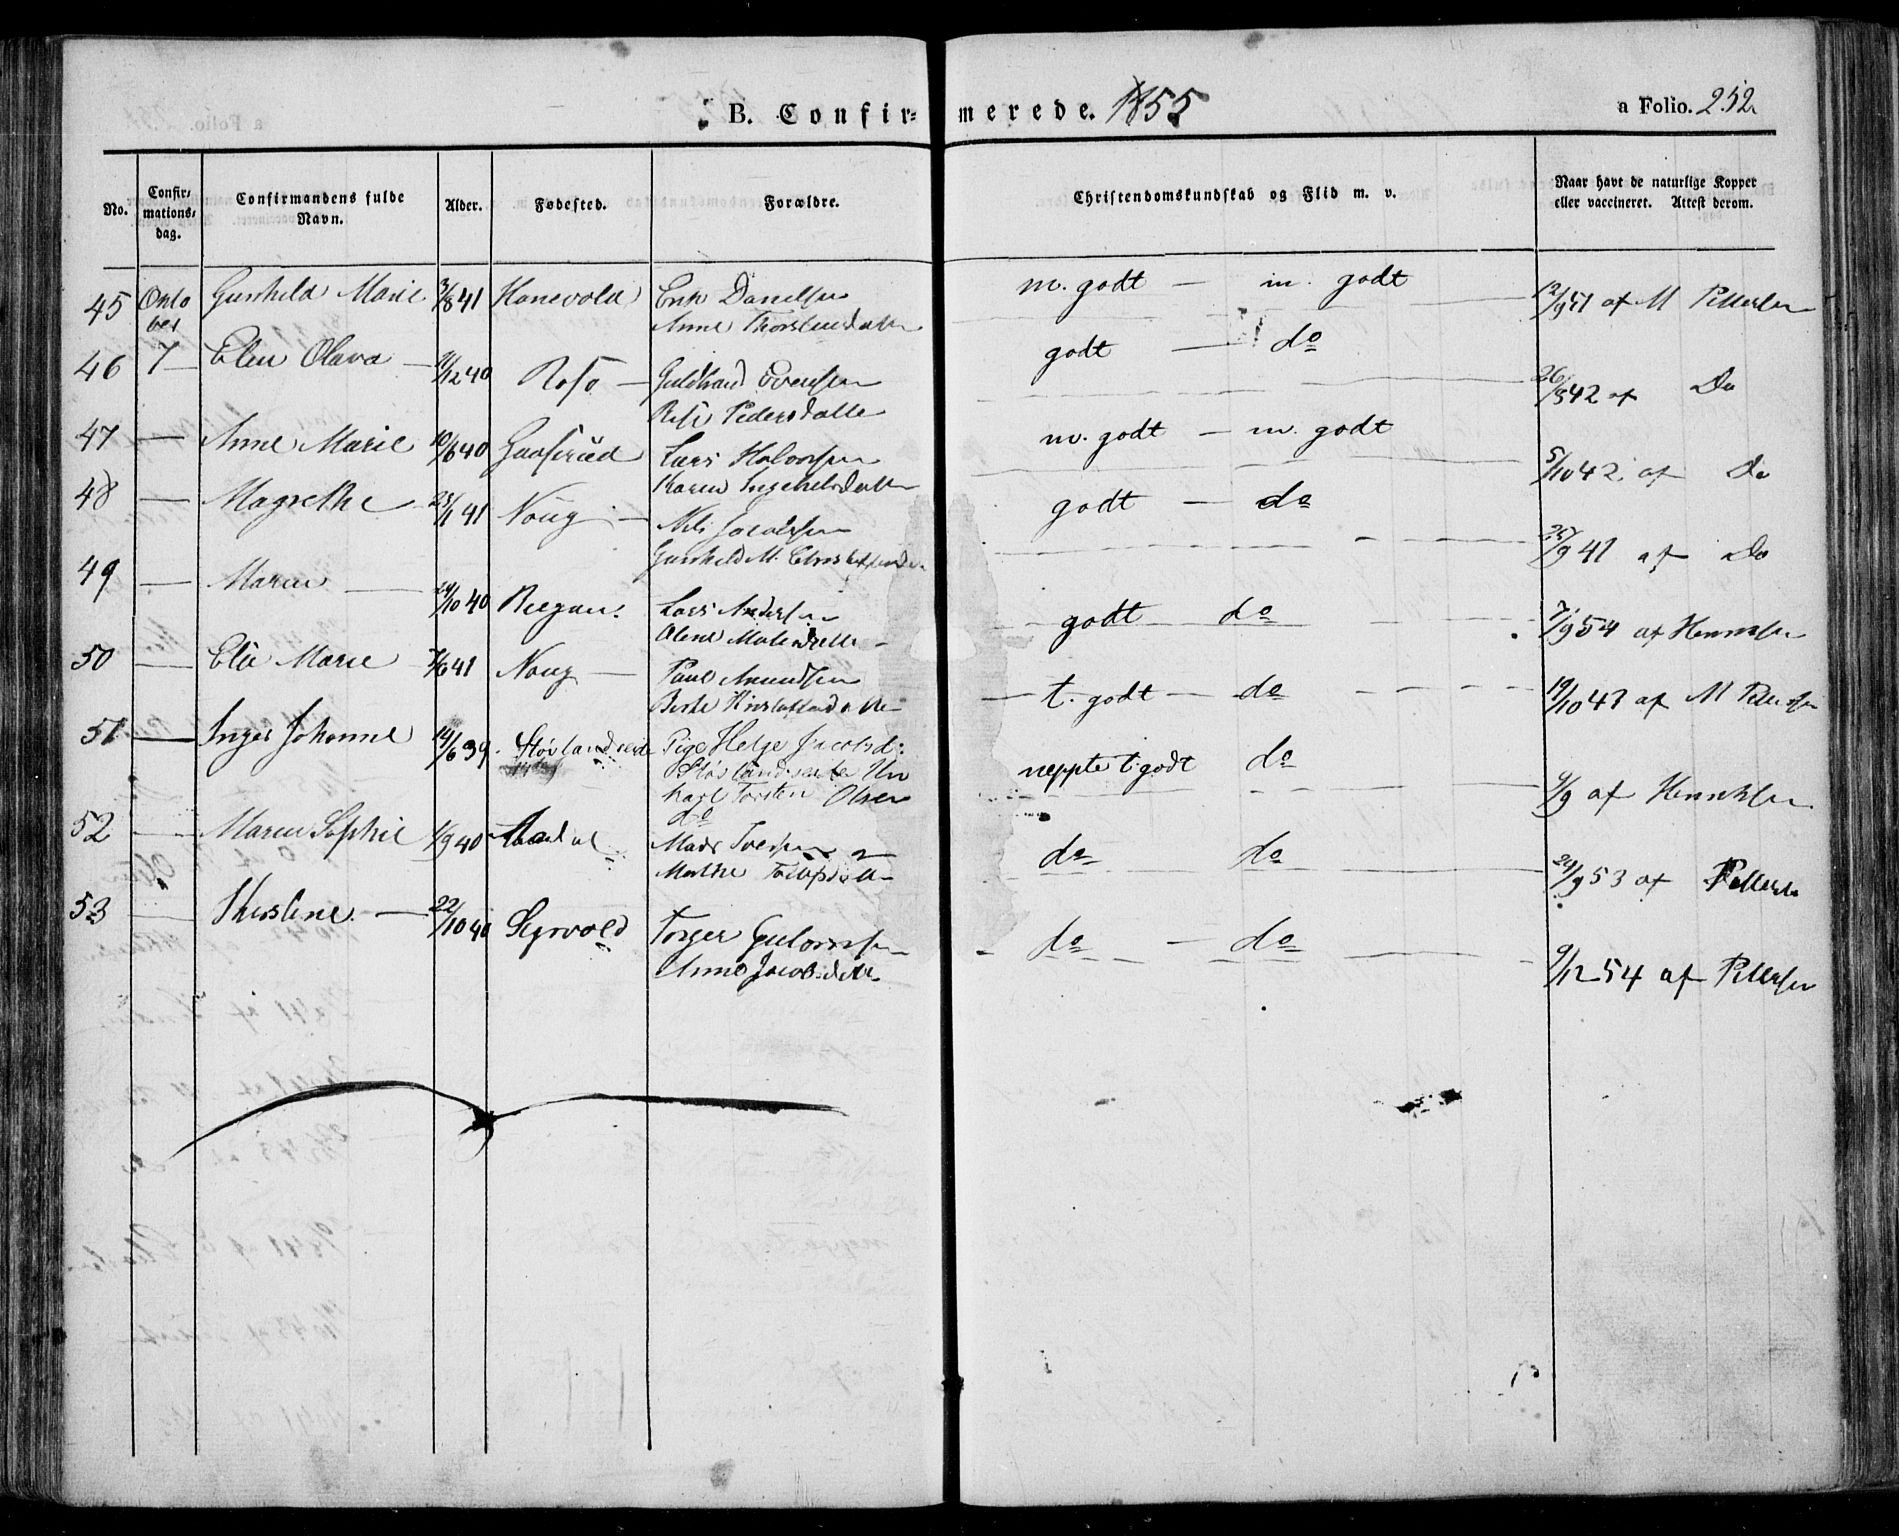 B. Confirmerede. 1855
a Folio. 252.
No. Confirmations-dag. Confirmandens fulde Navn. Alder. Fødested. Forældre. Christendomskundskab og Flid m. v. Naar havt de naturlige Kopper eller vaccineret. Attest derom.
45 October Gunhild Marie 3/8 41 Hanevold Erik Danielsen m. godt — m. godt af M Pettersen
Anne Thorstensdatter
46 7 — Elen Olava — 11/12 40 Roso — Guldbrand Evensen godt — do 26/8 42 af Do
Pedersdatter
47 — Anne Marie 10/6 40 Gaaserud Lars Halvorsen m. godt — m. godt 5/10 42 af Do
Karen Ingebretsdatter
48 — Magrethe 23/1 41 Noug — Nils Jacobsen godt — do 25/9 41 af Do
Gunhild M.
49 — Maren — 29/10 40 Lars Andersen godt — do 7/9 54 af Henriksen
Olene
50 — Elie Marie 7/6 41 Noug — Paul Amundsen t. godt — do 19/10 41 af M Pettersen
51 — Inger Johanne 14/6 39 Støvlandseie Pige Helge Jacobsd: neppe t. godt do 9/9 af Henriksen
Støvlandseie Un
karl Torsten Olsen
do
52 — Maren Sophie 1/9 40 Mads Iversen do do 29/9 53 af Pettersen
Marthe
53 — Kirstine — 22/10 40 Segrvold Torger Gulovsen do — do 9/12 54 af Pettersen
Anne Jacobsdatter